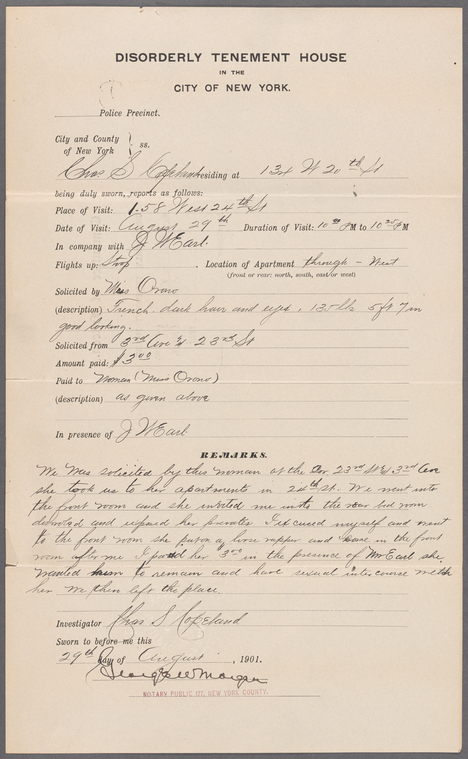 DISORDERLY TENEMENT HOUSE
IN THE
CITY OF NEW YORK.
Police Precinct.
City and County
of New York } ss.
Chas S Copeland residing at 134 W 20th St
being duly sworn, reports as follows:
Place of Visit: 158 West 24th St
Date of Visit: August 29th Duration of Visit: 10 PM to 10 PM
In company with J W Earl.
Flights up: Stoop Location of Apartment through - West
(front or rear: north, south, east or west)
Solicited by Miss Orono
(description) French, dark hair and eyes, 135 lbs 5 ft 7 in
good looking.
Solicited from 3rd Ave & 23rd St
Amount paid: $3.00
Paid to Woman (Miss Orono)
(description) as given above
In presence of J W Earl
REMARKS.
We was solicited by this woman at the Cor 23rd St & 3rd Ave
she took us to her apartments in 24th St. We went into
the front room and she invited me into the rear bed room
and exposed her privates I excused myself and went
to the front room she put on a wrapper and came in the front
room after me I paid her $3.00 in the presence of Mr Earl she
wanted him to remain and have sexual intercourse with
her We then left the place.
Investigator Chas S Copeland
Sworn to before me this
29th day of August, 1901.
George W Morgan
NOTARY PUBLIC 117, NEW YORK COUNTY.